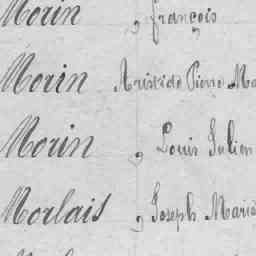 Morin , françois
Morin Aristide Pierre Ma
Morin , Louis Julien
Morlais , Joseph Marie